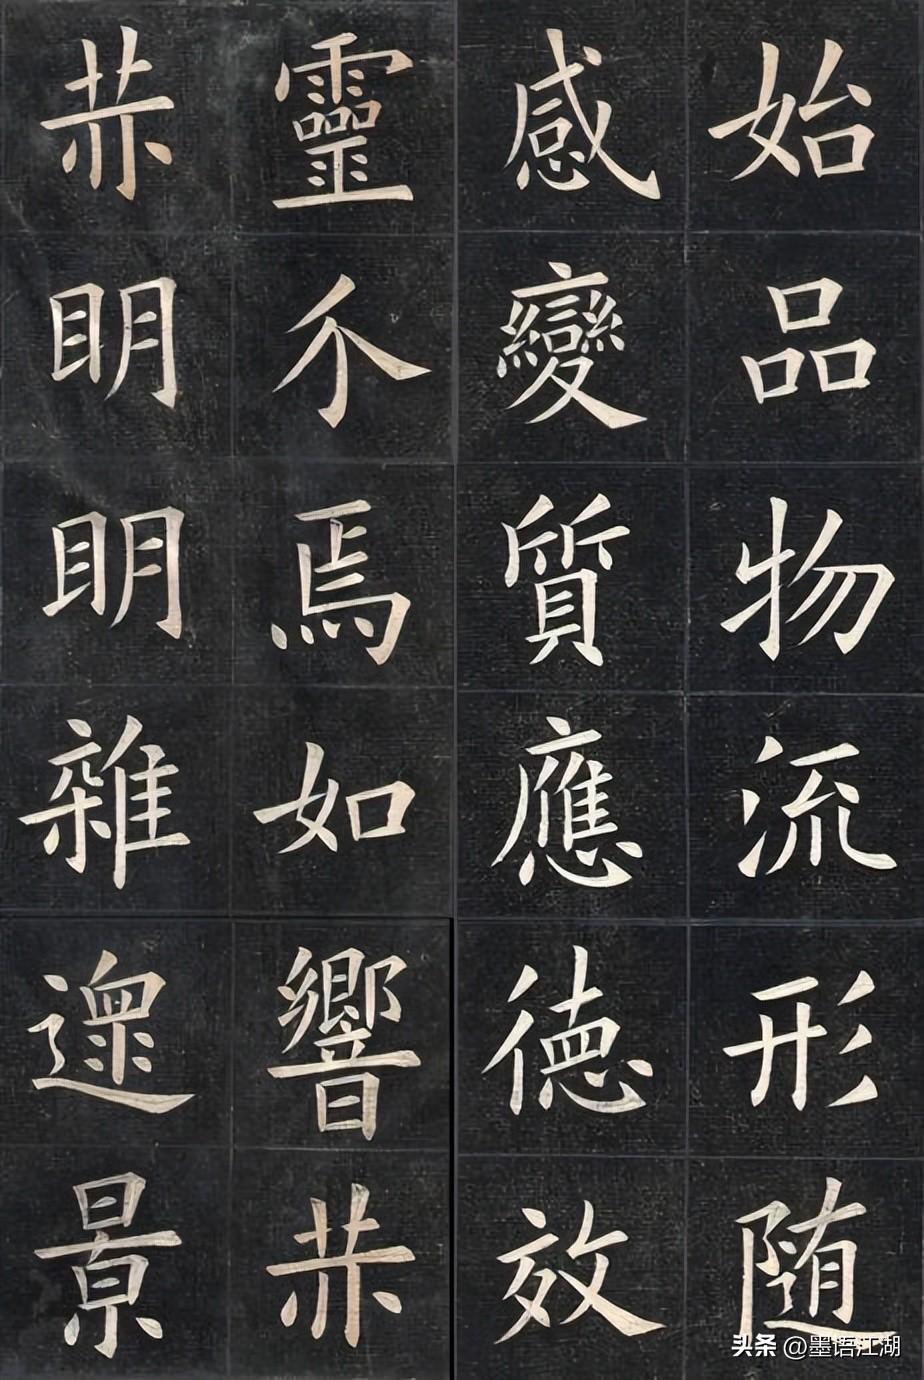 始品物流形随
感變質應德效
靈介焉如響赫
赫明明雜遝景
头条 @墨语江湖